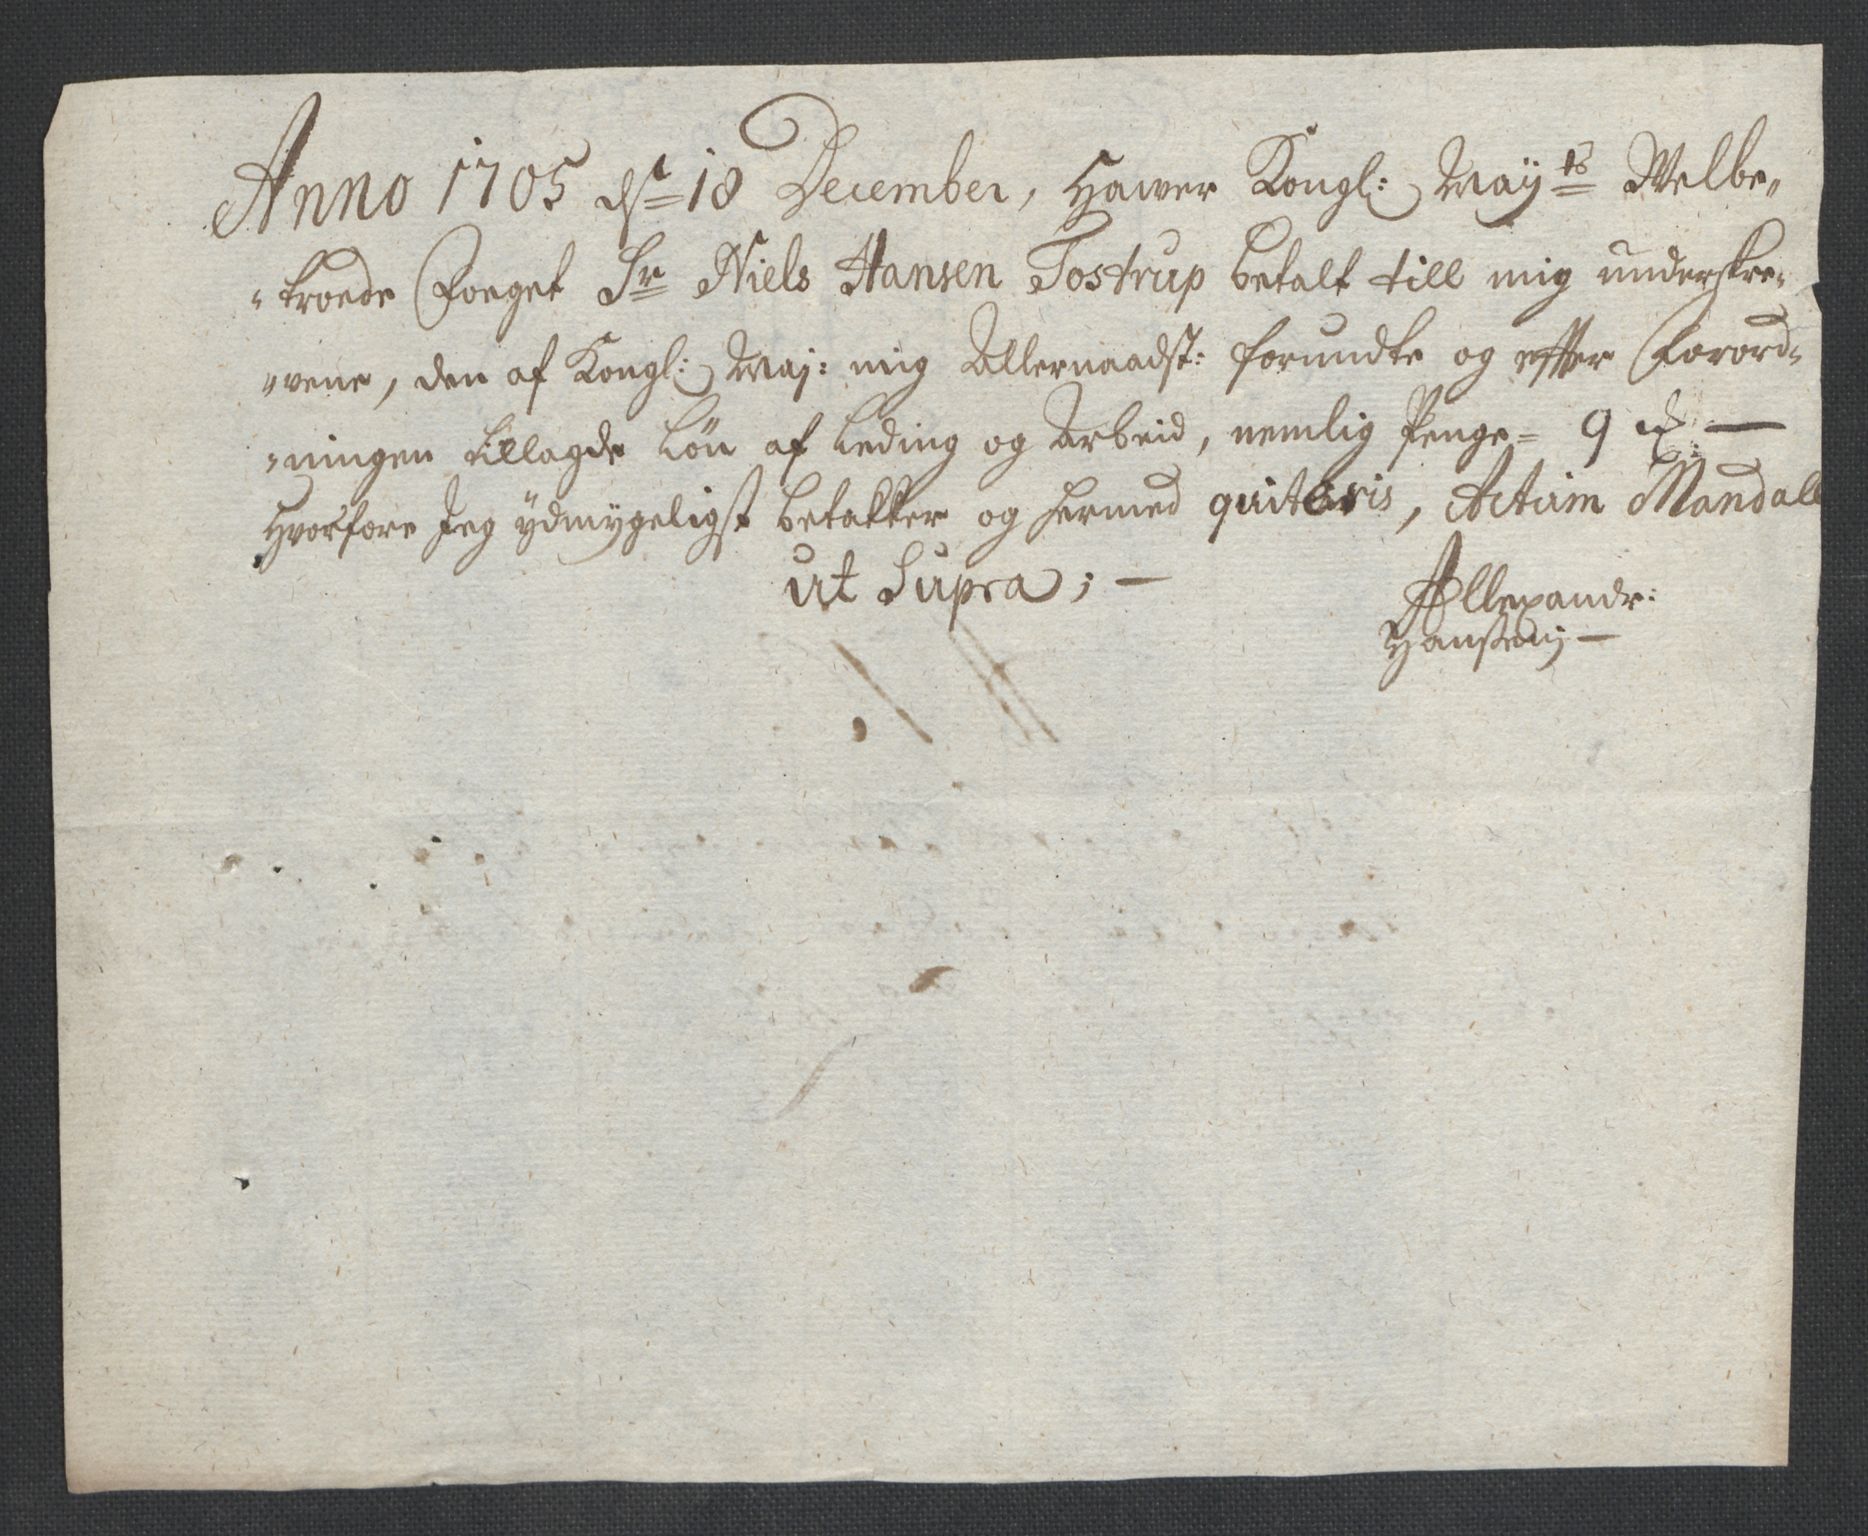 Anno 1705 dn 18 December, Hawer Kongl: Maÿts Welbe-
-troede Foeget Sr Niels Hansen Tostrup betalt till mig underskre-
-vene, den af Kongl: Maj: mig Allernaadst: forundte og effter Forord-
-ningen tillagde Løn af Leding og Arbeid, nemlig Penge = 9 —
Hvorfore Jeg ÿdmygeligst betakker og hermed quiteris, Actum Mandall
ut Supra; —
Allexandr: